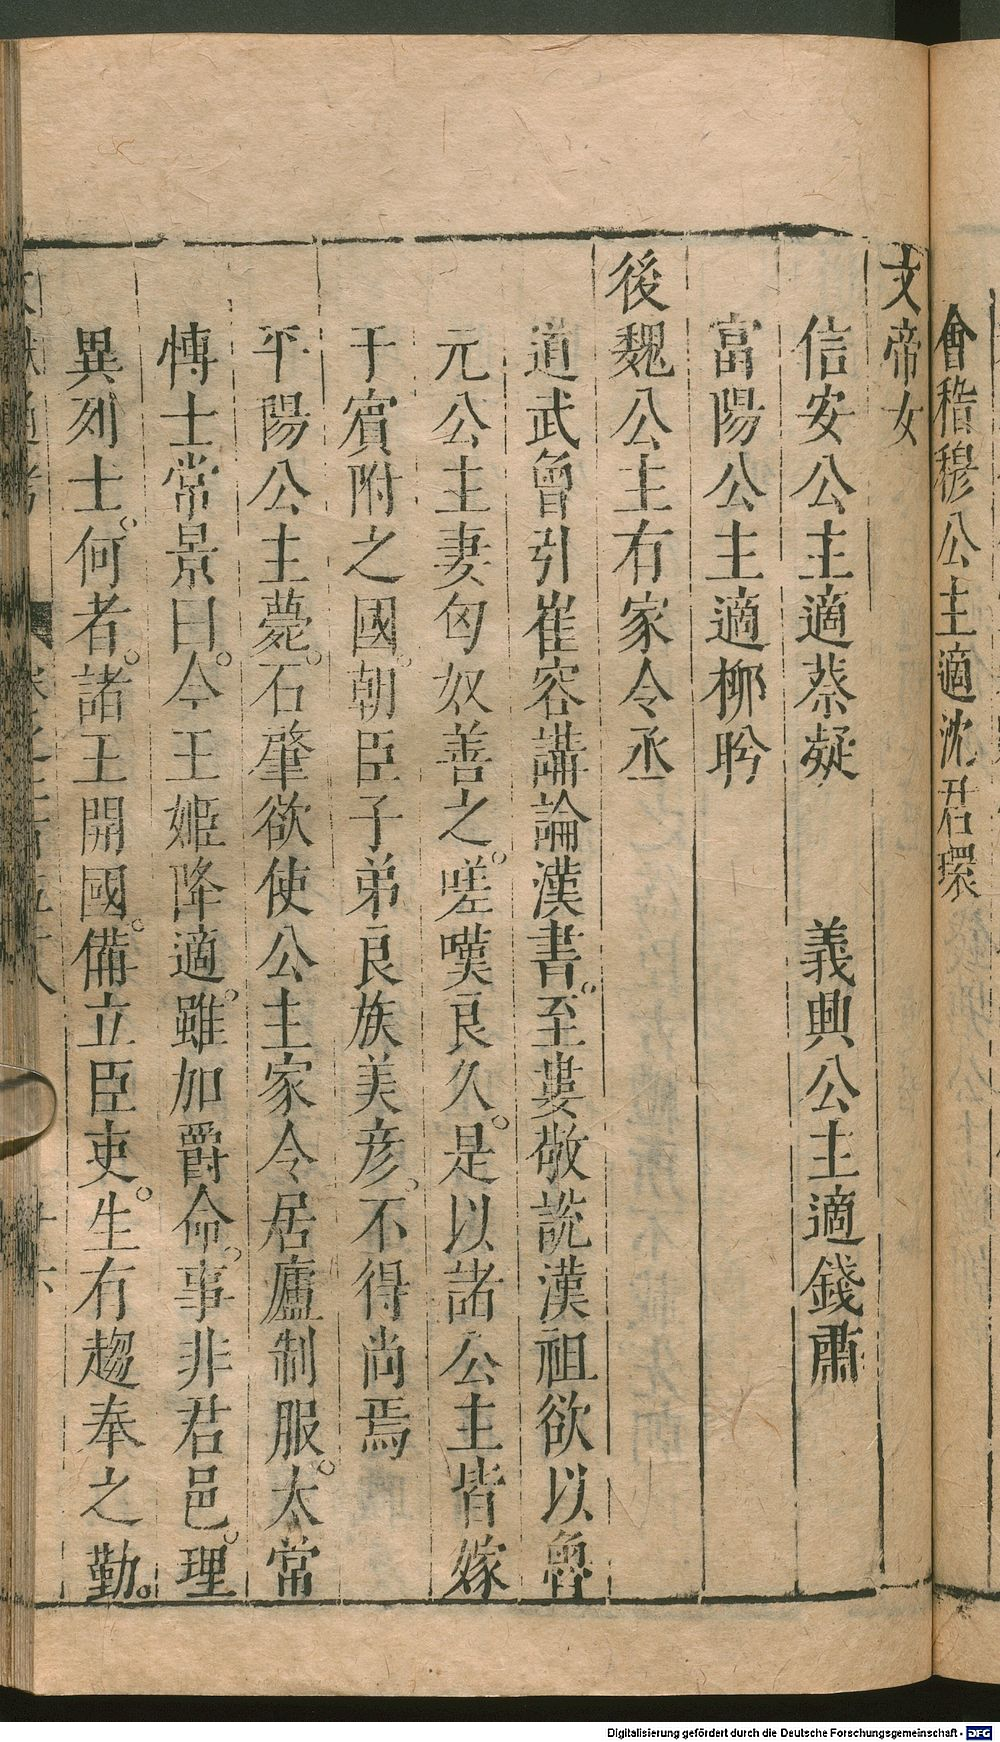 會稽穆公主適沈君理
文帝女
信安公主適蔡凝　義興公主適錢肅
富陽公主適柳盼
後魏公主有家令丞
道武曾引崔容講論漢書。至婁敬說漢祖欲以魯
元公主妻匈奴善之。嗟嘆良久。是以諸公主皆嫁
于賓附之國。朝臣子弟良族美彦。不得尚焉
平陽公主薨。石肇欲使公主家令居廬制服。太常
慱士常景曰。今王姬降適。雖加爵命。事非君邑。理
異列士。何者。諸王開國。備立臣吏。生有趨奉之勤。
Digitalisierung gefördert durch die Deutsche Forschungsgemeinschaft - DFG